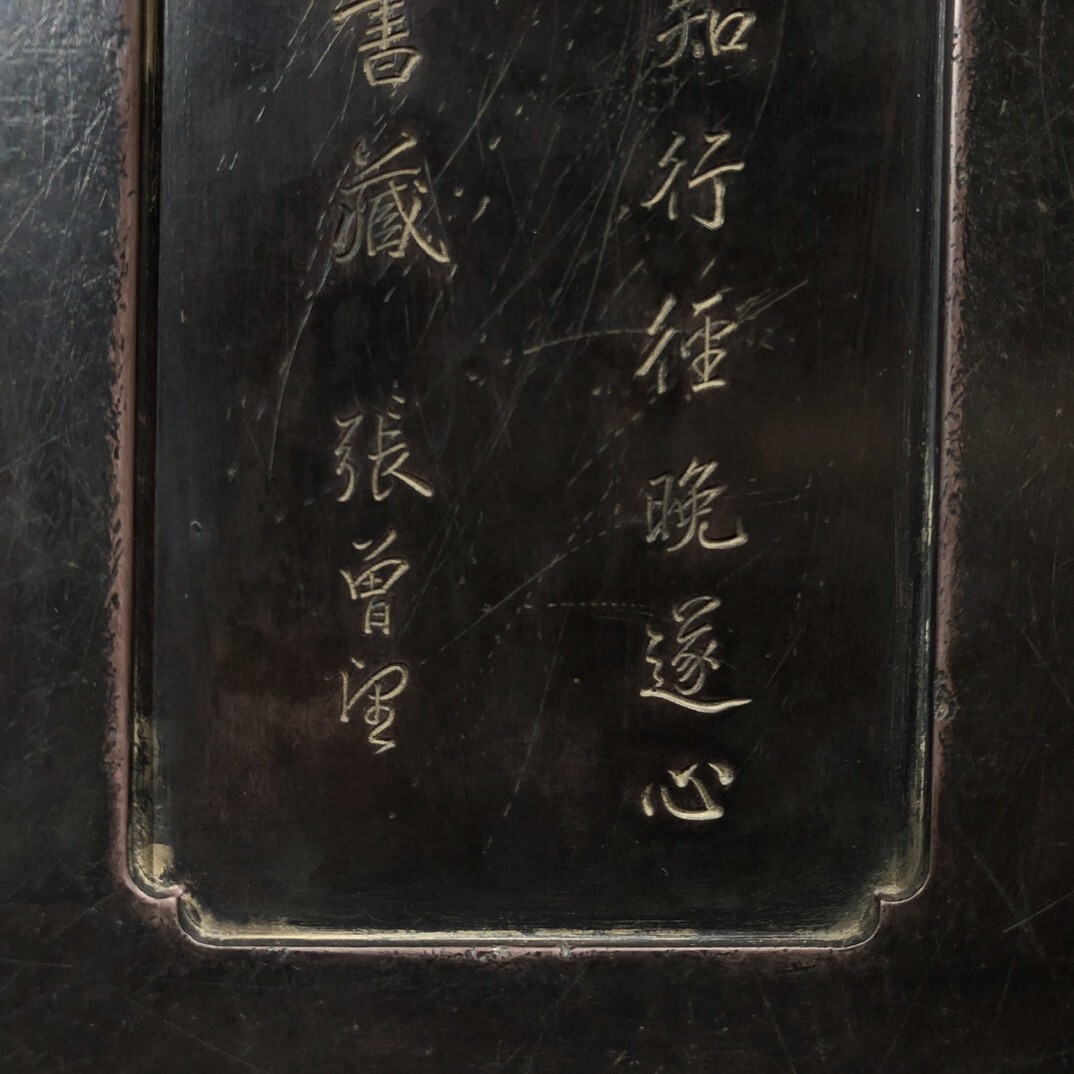 知行徑晚遂心
書藏 張曾